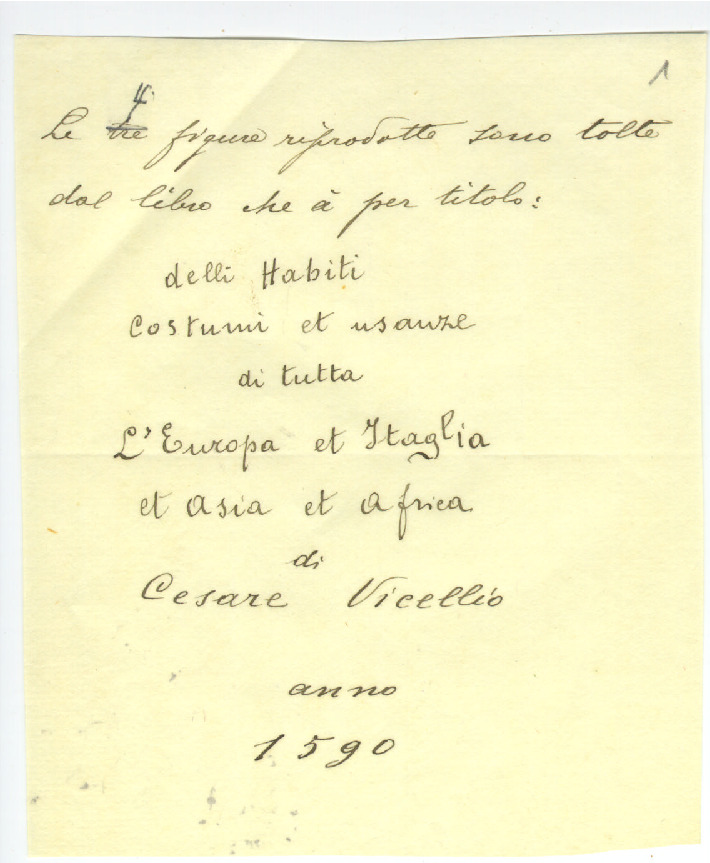 1
Le tre 4 figure riprodotte sono tolte
dal libro che à per titolo:
delli Habiti
Costumi et usanze
di tutta
L'Europa et Itaglia
et Asia et Africa
di
Cesare Vicellio
anno
1590